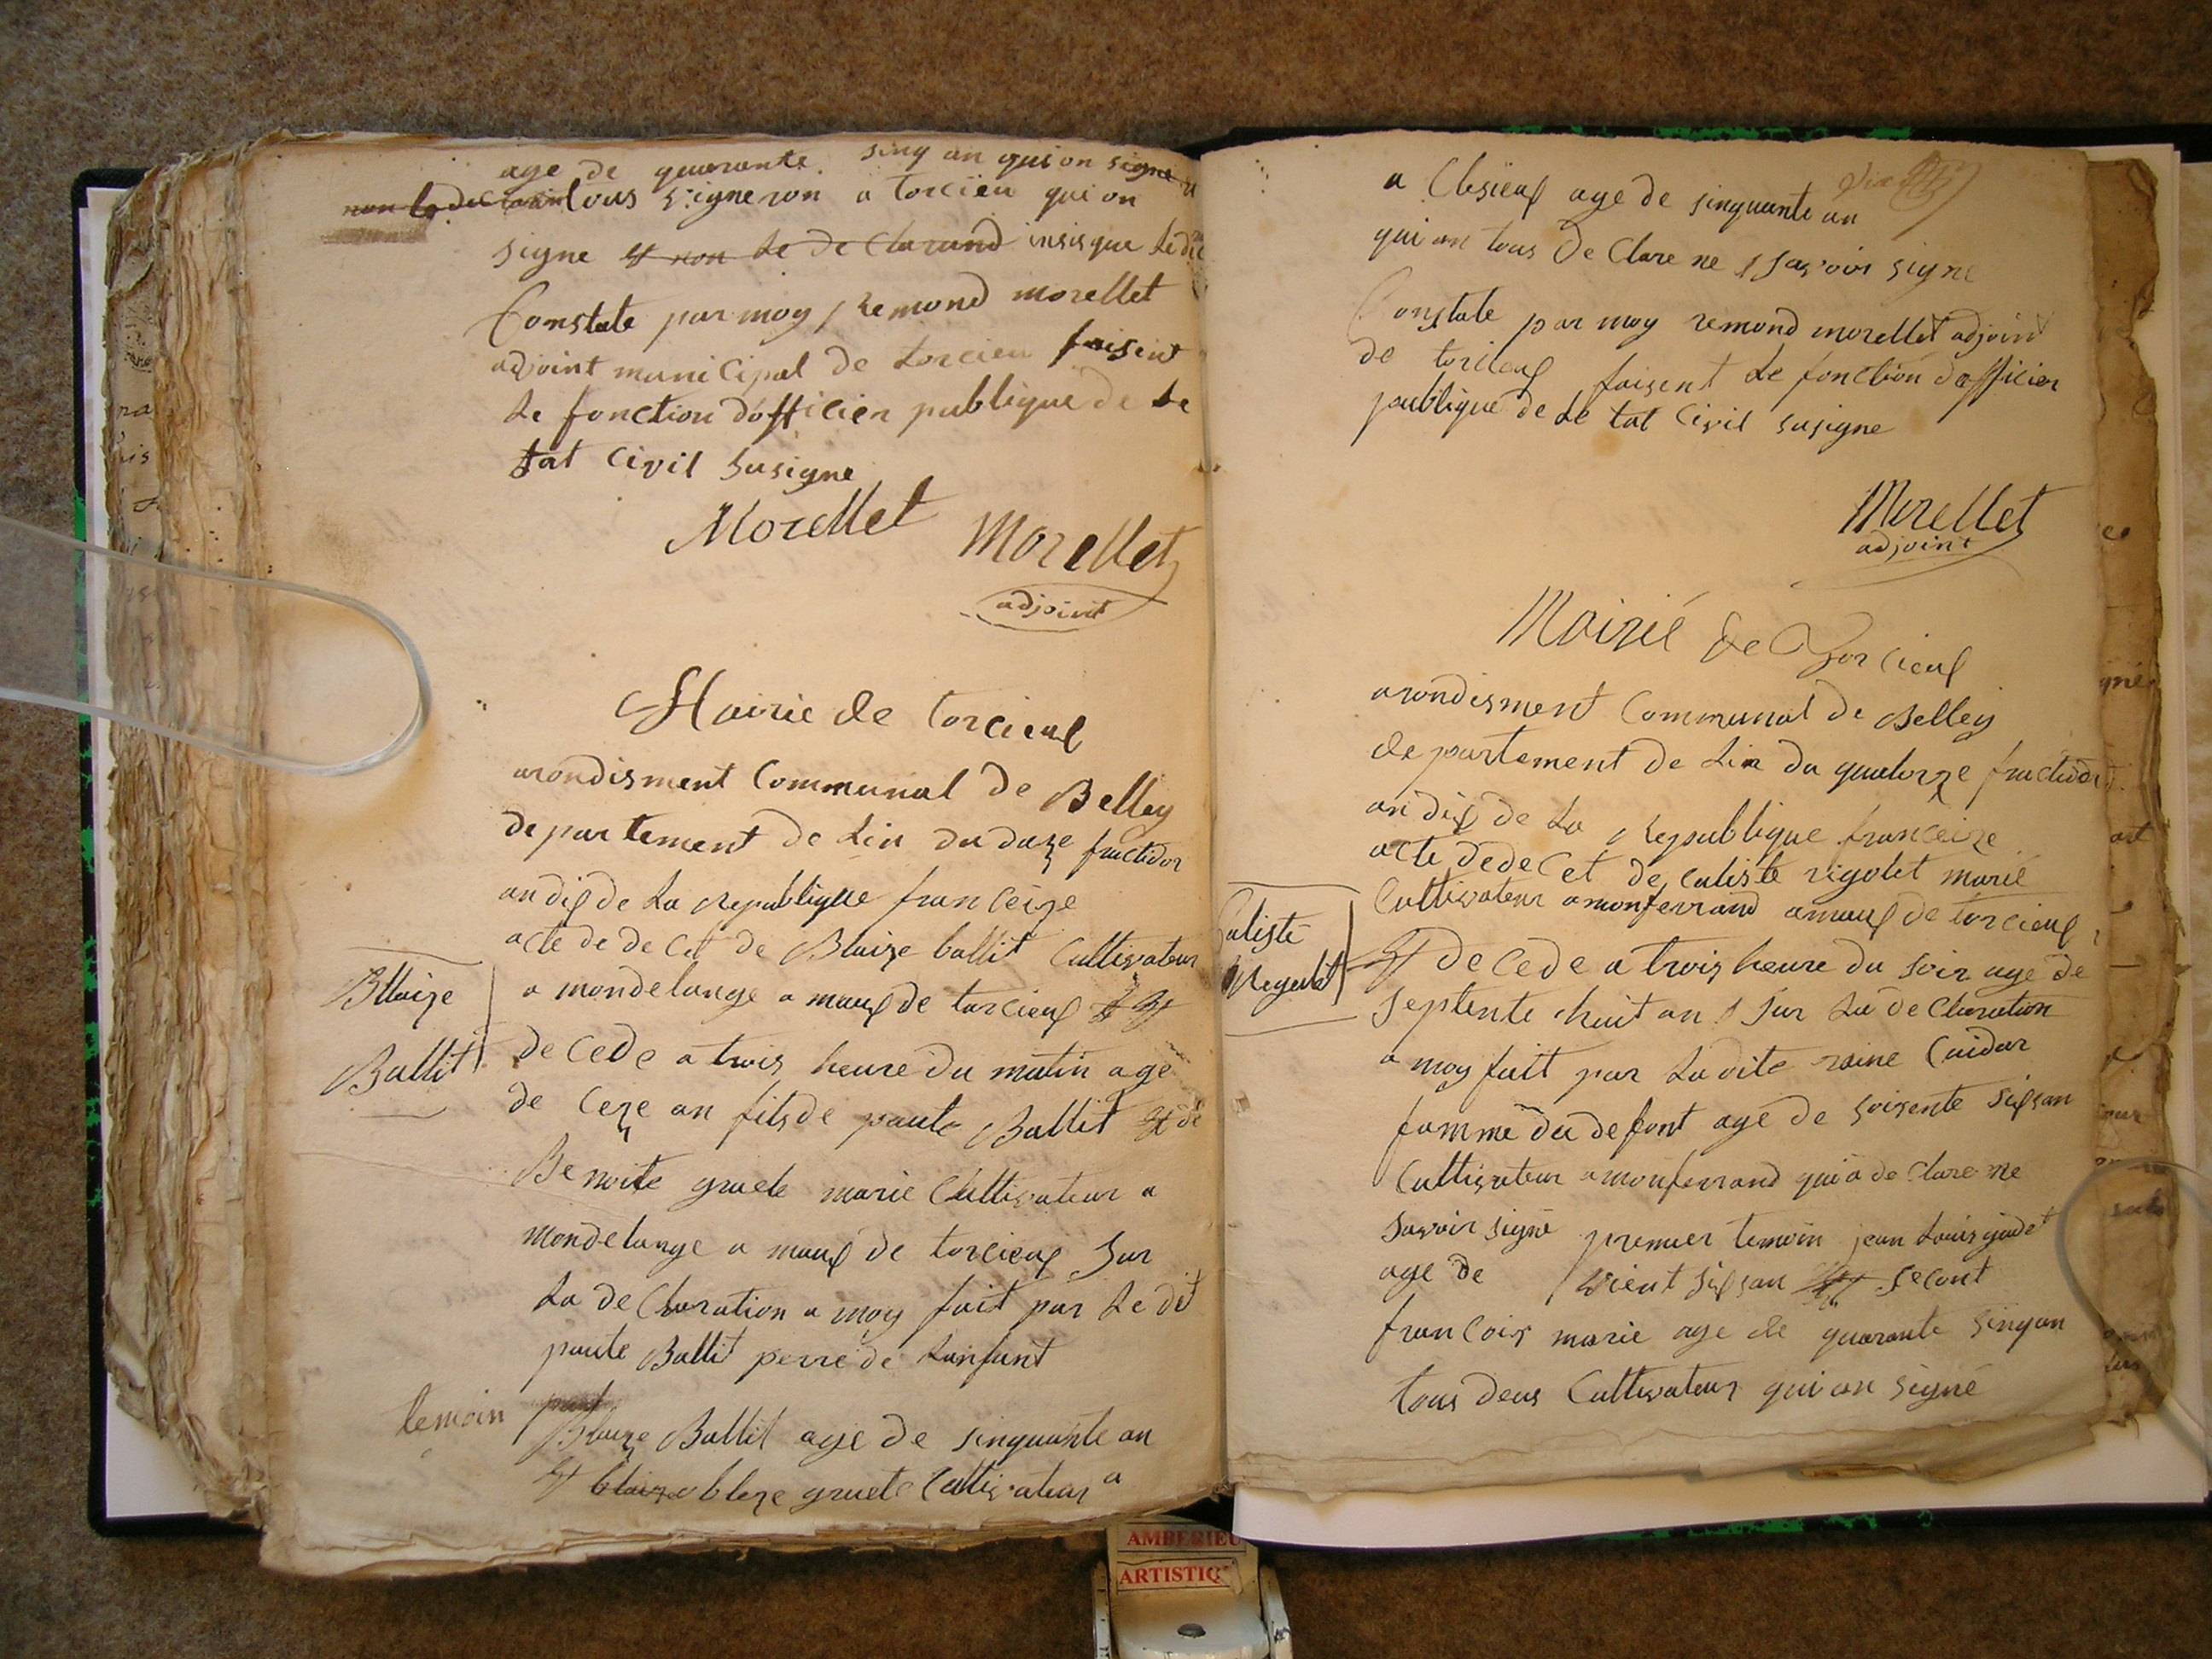 age de quarante sinq an qui on signe
non le declarant tous vigneron a torcieu qui on
signe et non le de Clarand insisque ledit
Constate par moy remond morellet
adjoint municipal de torcieu faisent
le fonction dofficier publique de le
tat Civil susigne
Morellet Morellet
adjoint
Mairie de torcieux
arondisment Communal de Belley
departement de Lin du doze fructidor
an dix de La republique franceize
acte de decet de Blaize ballit Cultivateur
Bllaize
Ballit
a mondelange a maux de torcieux et
decede a trois heure du matin age
de Ceze an fils de paule Ballit et de
Benoite gruele marie Cultivateur a
mondelange a maux de torcieux sur
La de Claration a moy fait par Le dit
paule Ballit perre de Lanfant
temoin
Blaize Ballit age de sinquante an
et blaize bleze gruele Cultivateur a
a Clesieux age de sinquante an
dix
qui on tous de Clare ne savoir signe
Constate par moy remond morellet adjoint
de torcieux faisent Le fonction dofficier
publique de Le tat Civil susigne
Morellet
adjoint
Mairie de Torcieux
arondisment Communal de Belley
departement de Lin du quatorze fructidor
an dix de La republique franceize
acte de decet de caliste rigolet marie
Cultivateur a monferrand a maux de torcieux
Caliste
Regulet
et decede a trois heure du soir age de
septente huit an sur La de Claration
a moy fait par La dite raine Cuidar
famme du defont age de soisente sixsan
Cultivateur a monferrand qui a de Clare ne
savoir signe premier temoin jean Louis gindet
age de vient sixsan et secont
francois marie age de quarante sinq an
tous deus Cultivateur qui on signé
AMBERIEU
ARTISTIQ